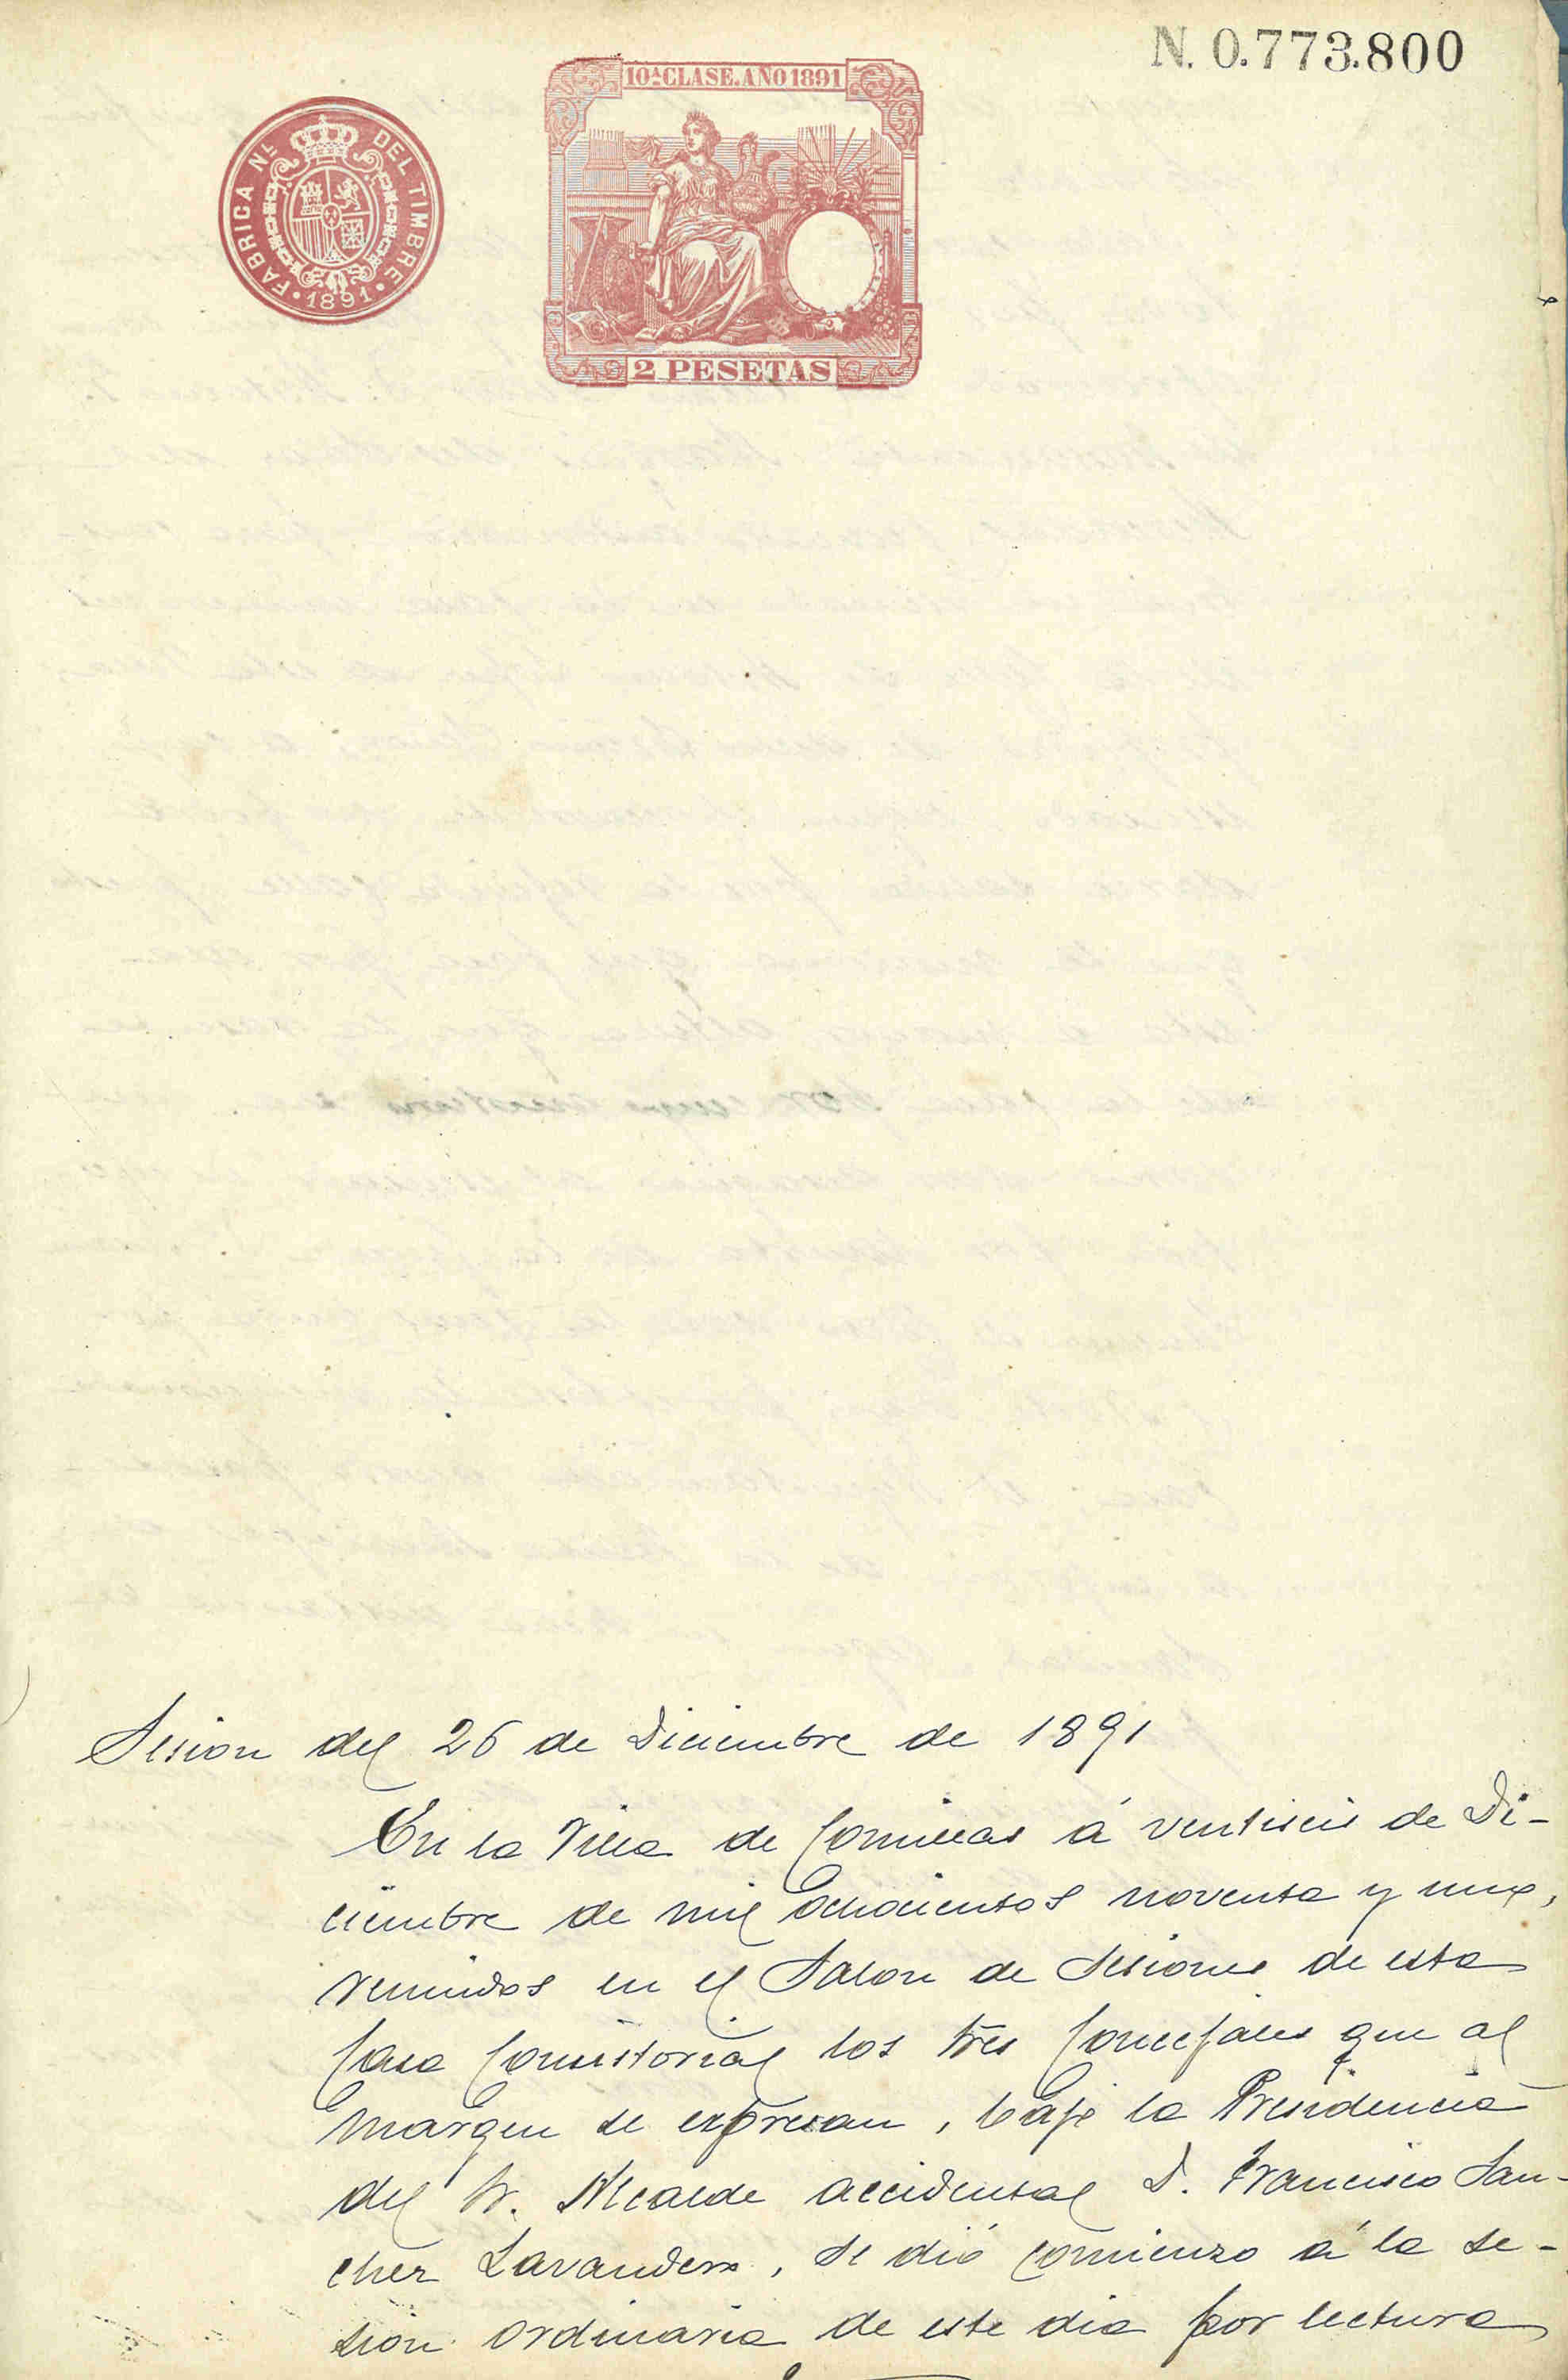 N. 0.773.800
10ª CLASE. AÑO 1891
FABRICA Nᴸ DEL TIMBRE
· 1891 ·
2 PESETAS
Sesion del 26 de Diciembre de 1891
En la Villa de Comillas á ventiseis de Di-
ciembre de mil ochocientos noventa y uno,
reunidos en el Salon de Sesiones de esta
Casa Consistorial los tres Concejales que al
margen se expresan, bajo la Presidencia
del Sr. Alcalde accidental D. Francisco San-
chez Lavandero, se dió comienzo á la se-
sion ordinaria de este dia por lectura